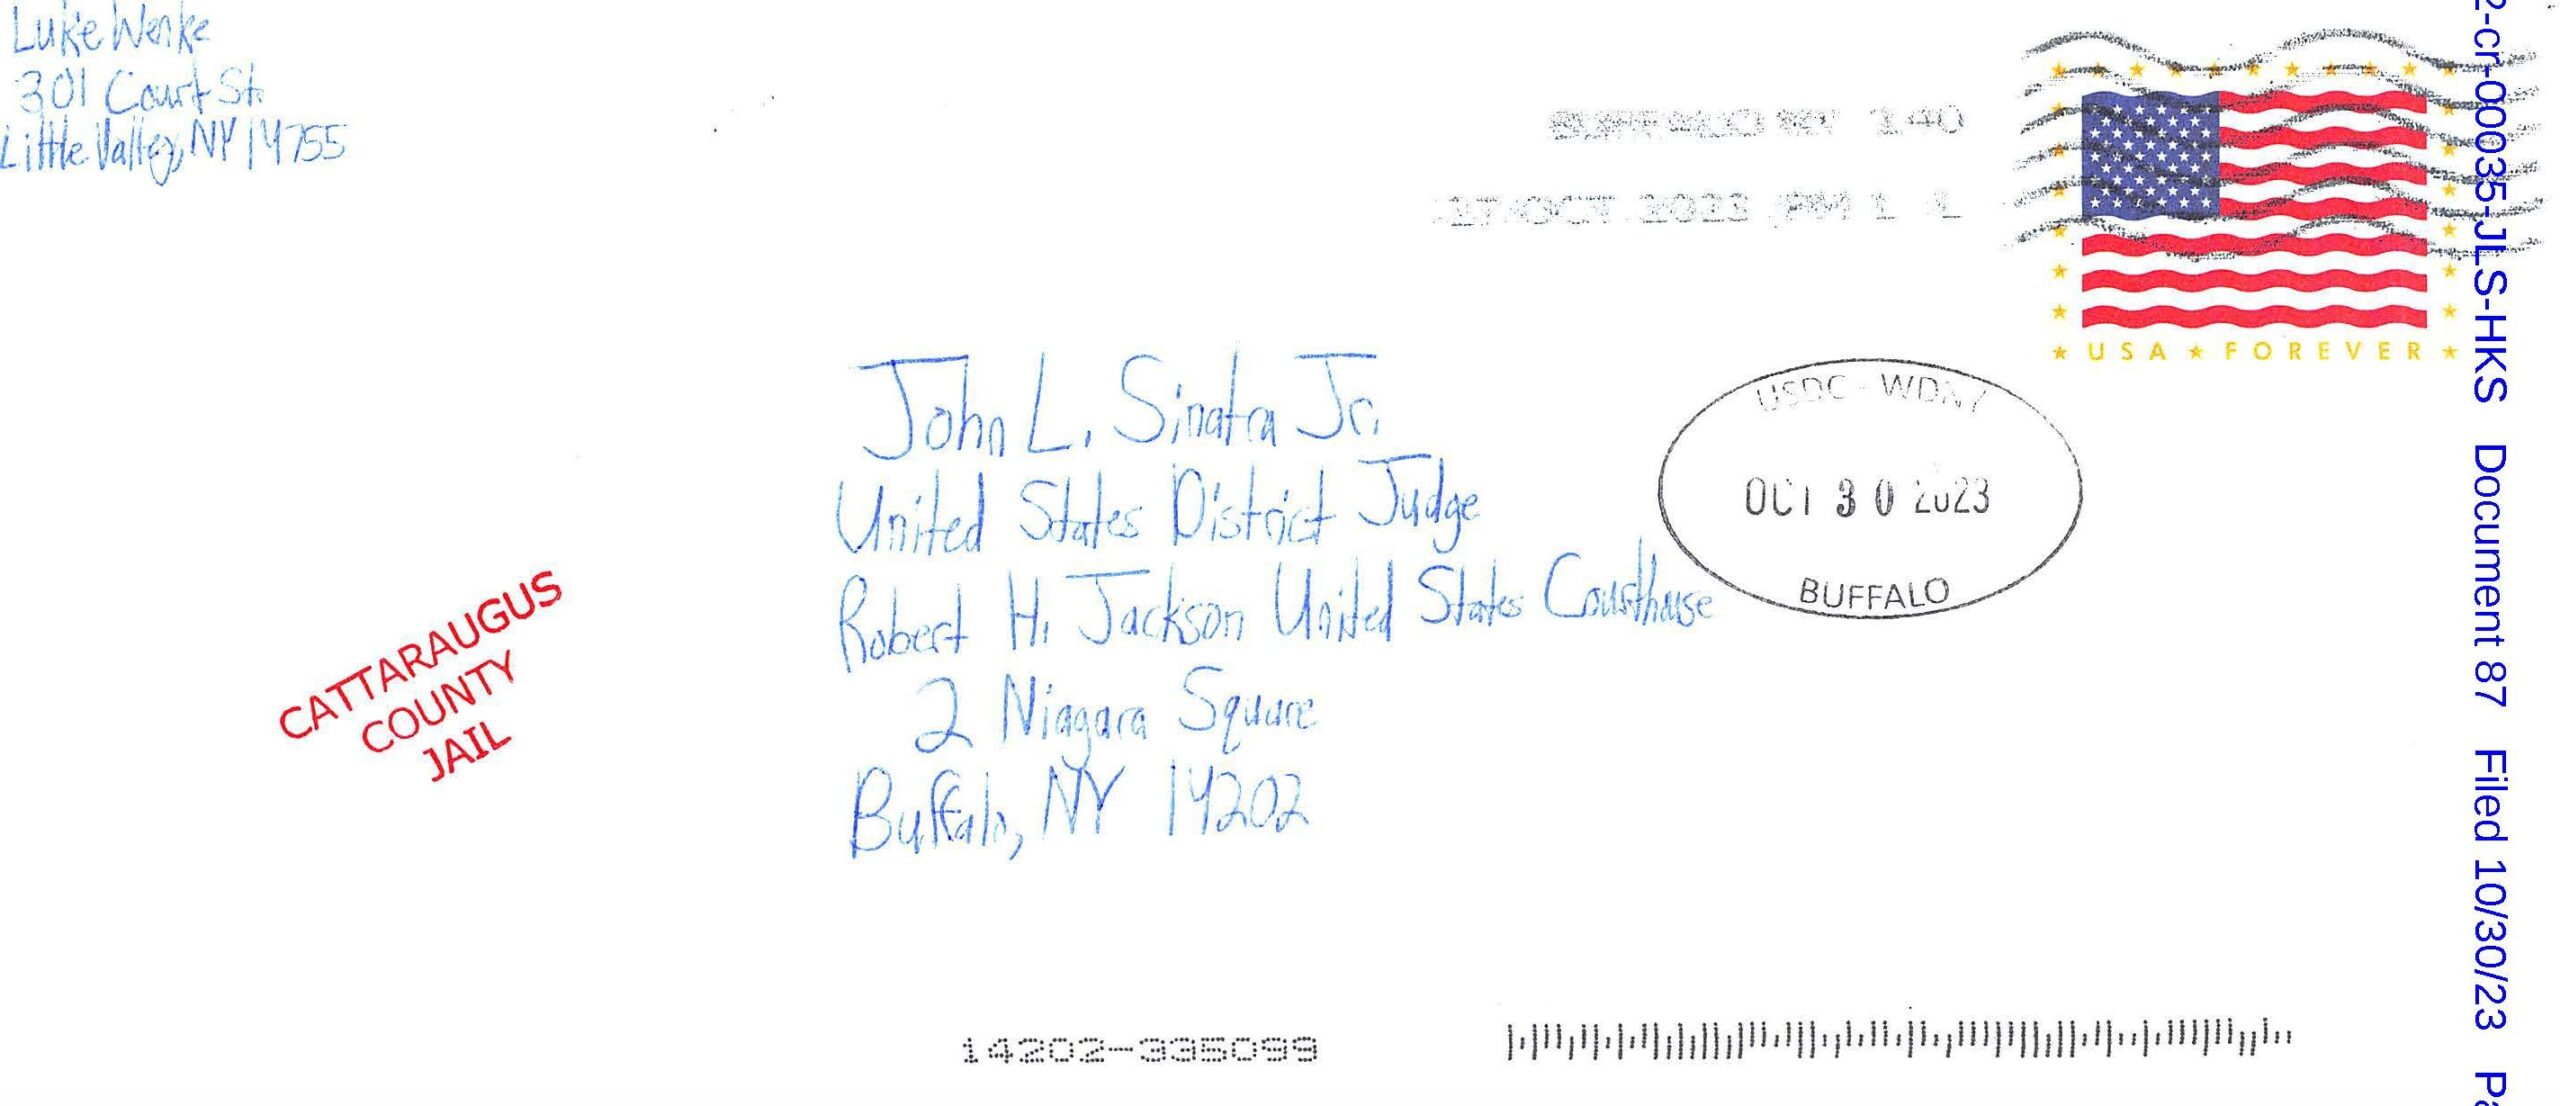 Luke Wenke
301 Court St.
Little Valley, NY 14755
BUFFALO NY 140
17 OCT 2023 PM 1 L
USA FOREVER
John L. Sinatra Jr.
United States District Judge
Robert H. Jackson United States Courthouse
2 Niagara Square
Buffalo, NY 14202
USDC - WDNY
OCT 30 2023
BUFFALO
CATTARAUGUS
COUNTY
JAIL
14202-335099
2-cr-00035-JLS-HKS Document 87 Filed 10/30/23